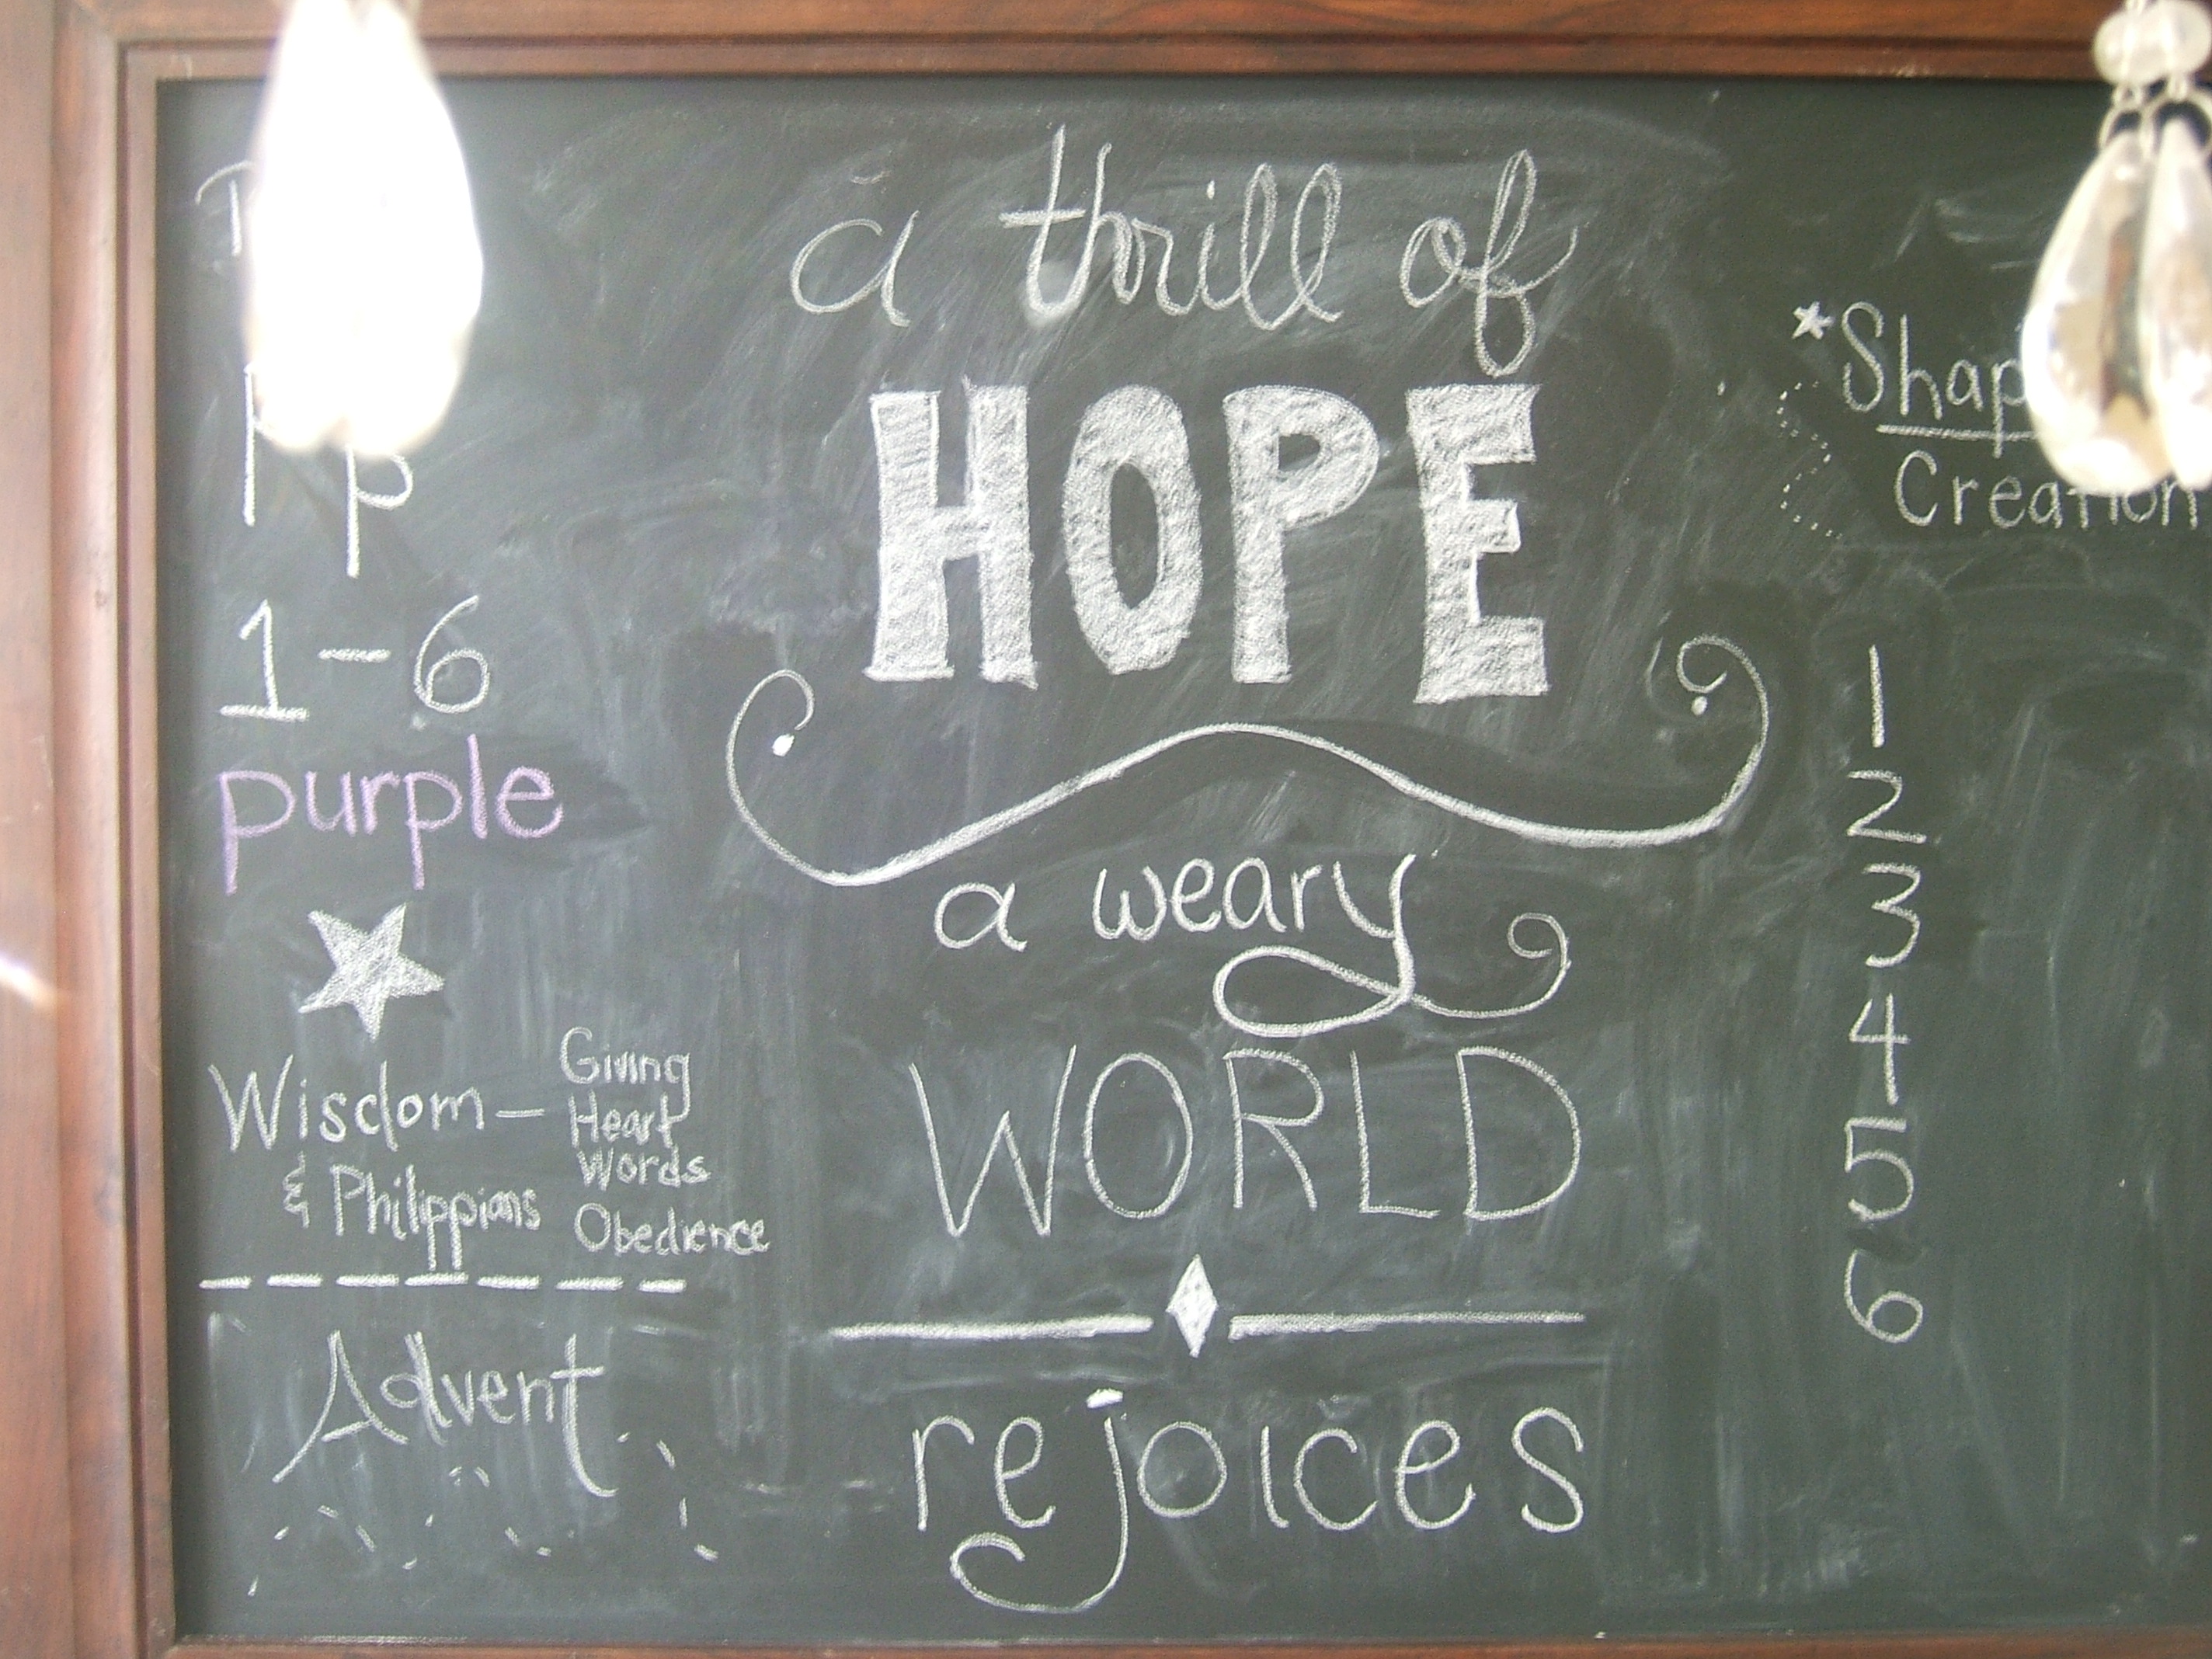 P p
1-6
purple
Wisdom - Giving
Heart
Words
& Philippians Obedience
Advent
a thrill of
HOPE
a weary
WORLD
rejoices
Creation
1
2
3
4
5
6